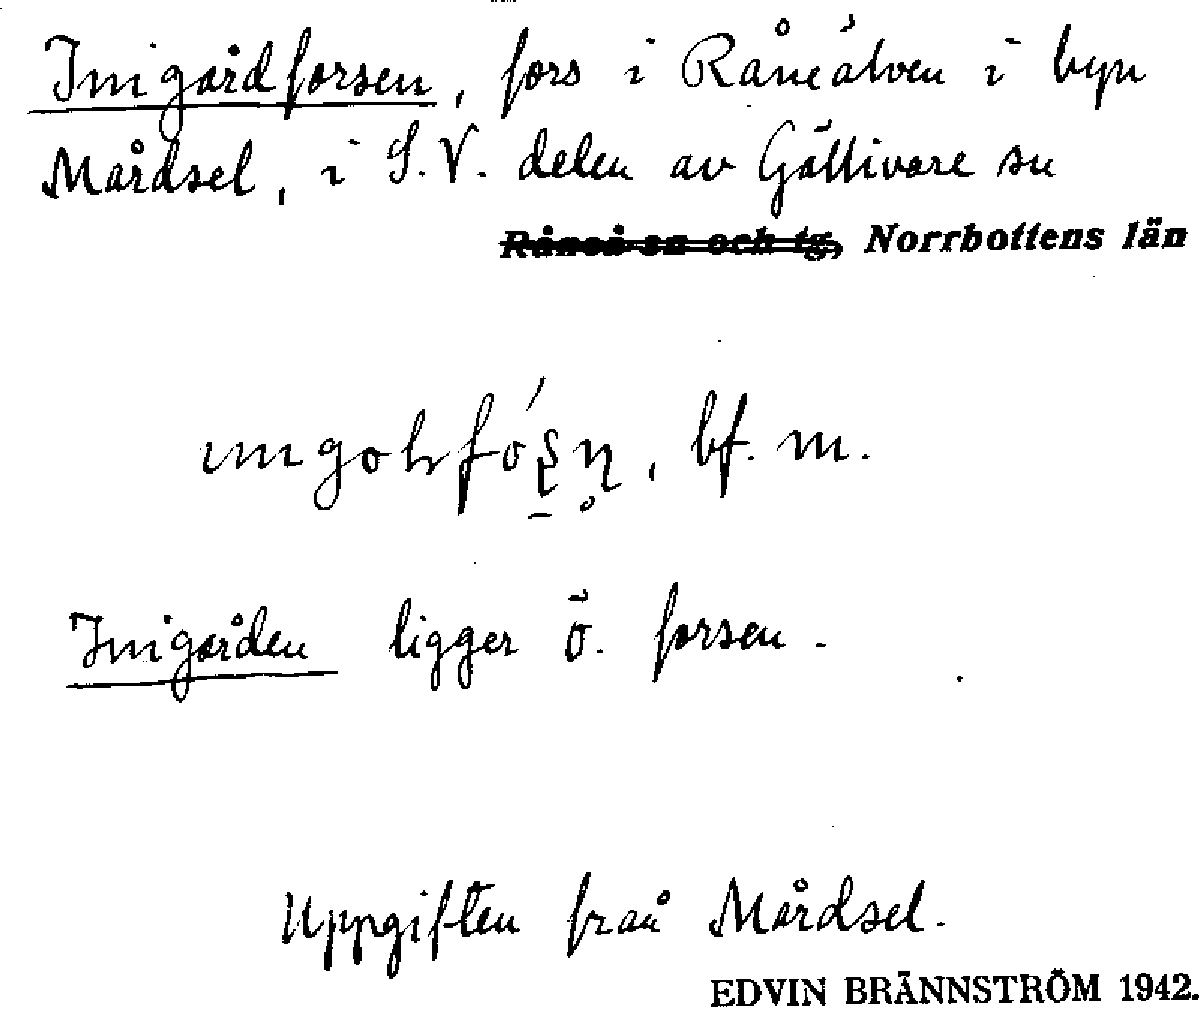 Inigårdforsen, fors i Råneälven i byn
Mårdsel, i S.V. delen av Gällivare sn
~~Råneå sn och tg,~~ Norrbottens län
bf. m.
Inigården ligger ö. forsen.
Uppgiften från Mårdsel.
EDVIN BRÄNNSTRÖM 1942.